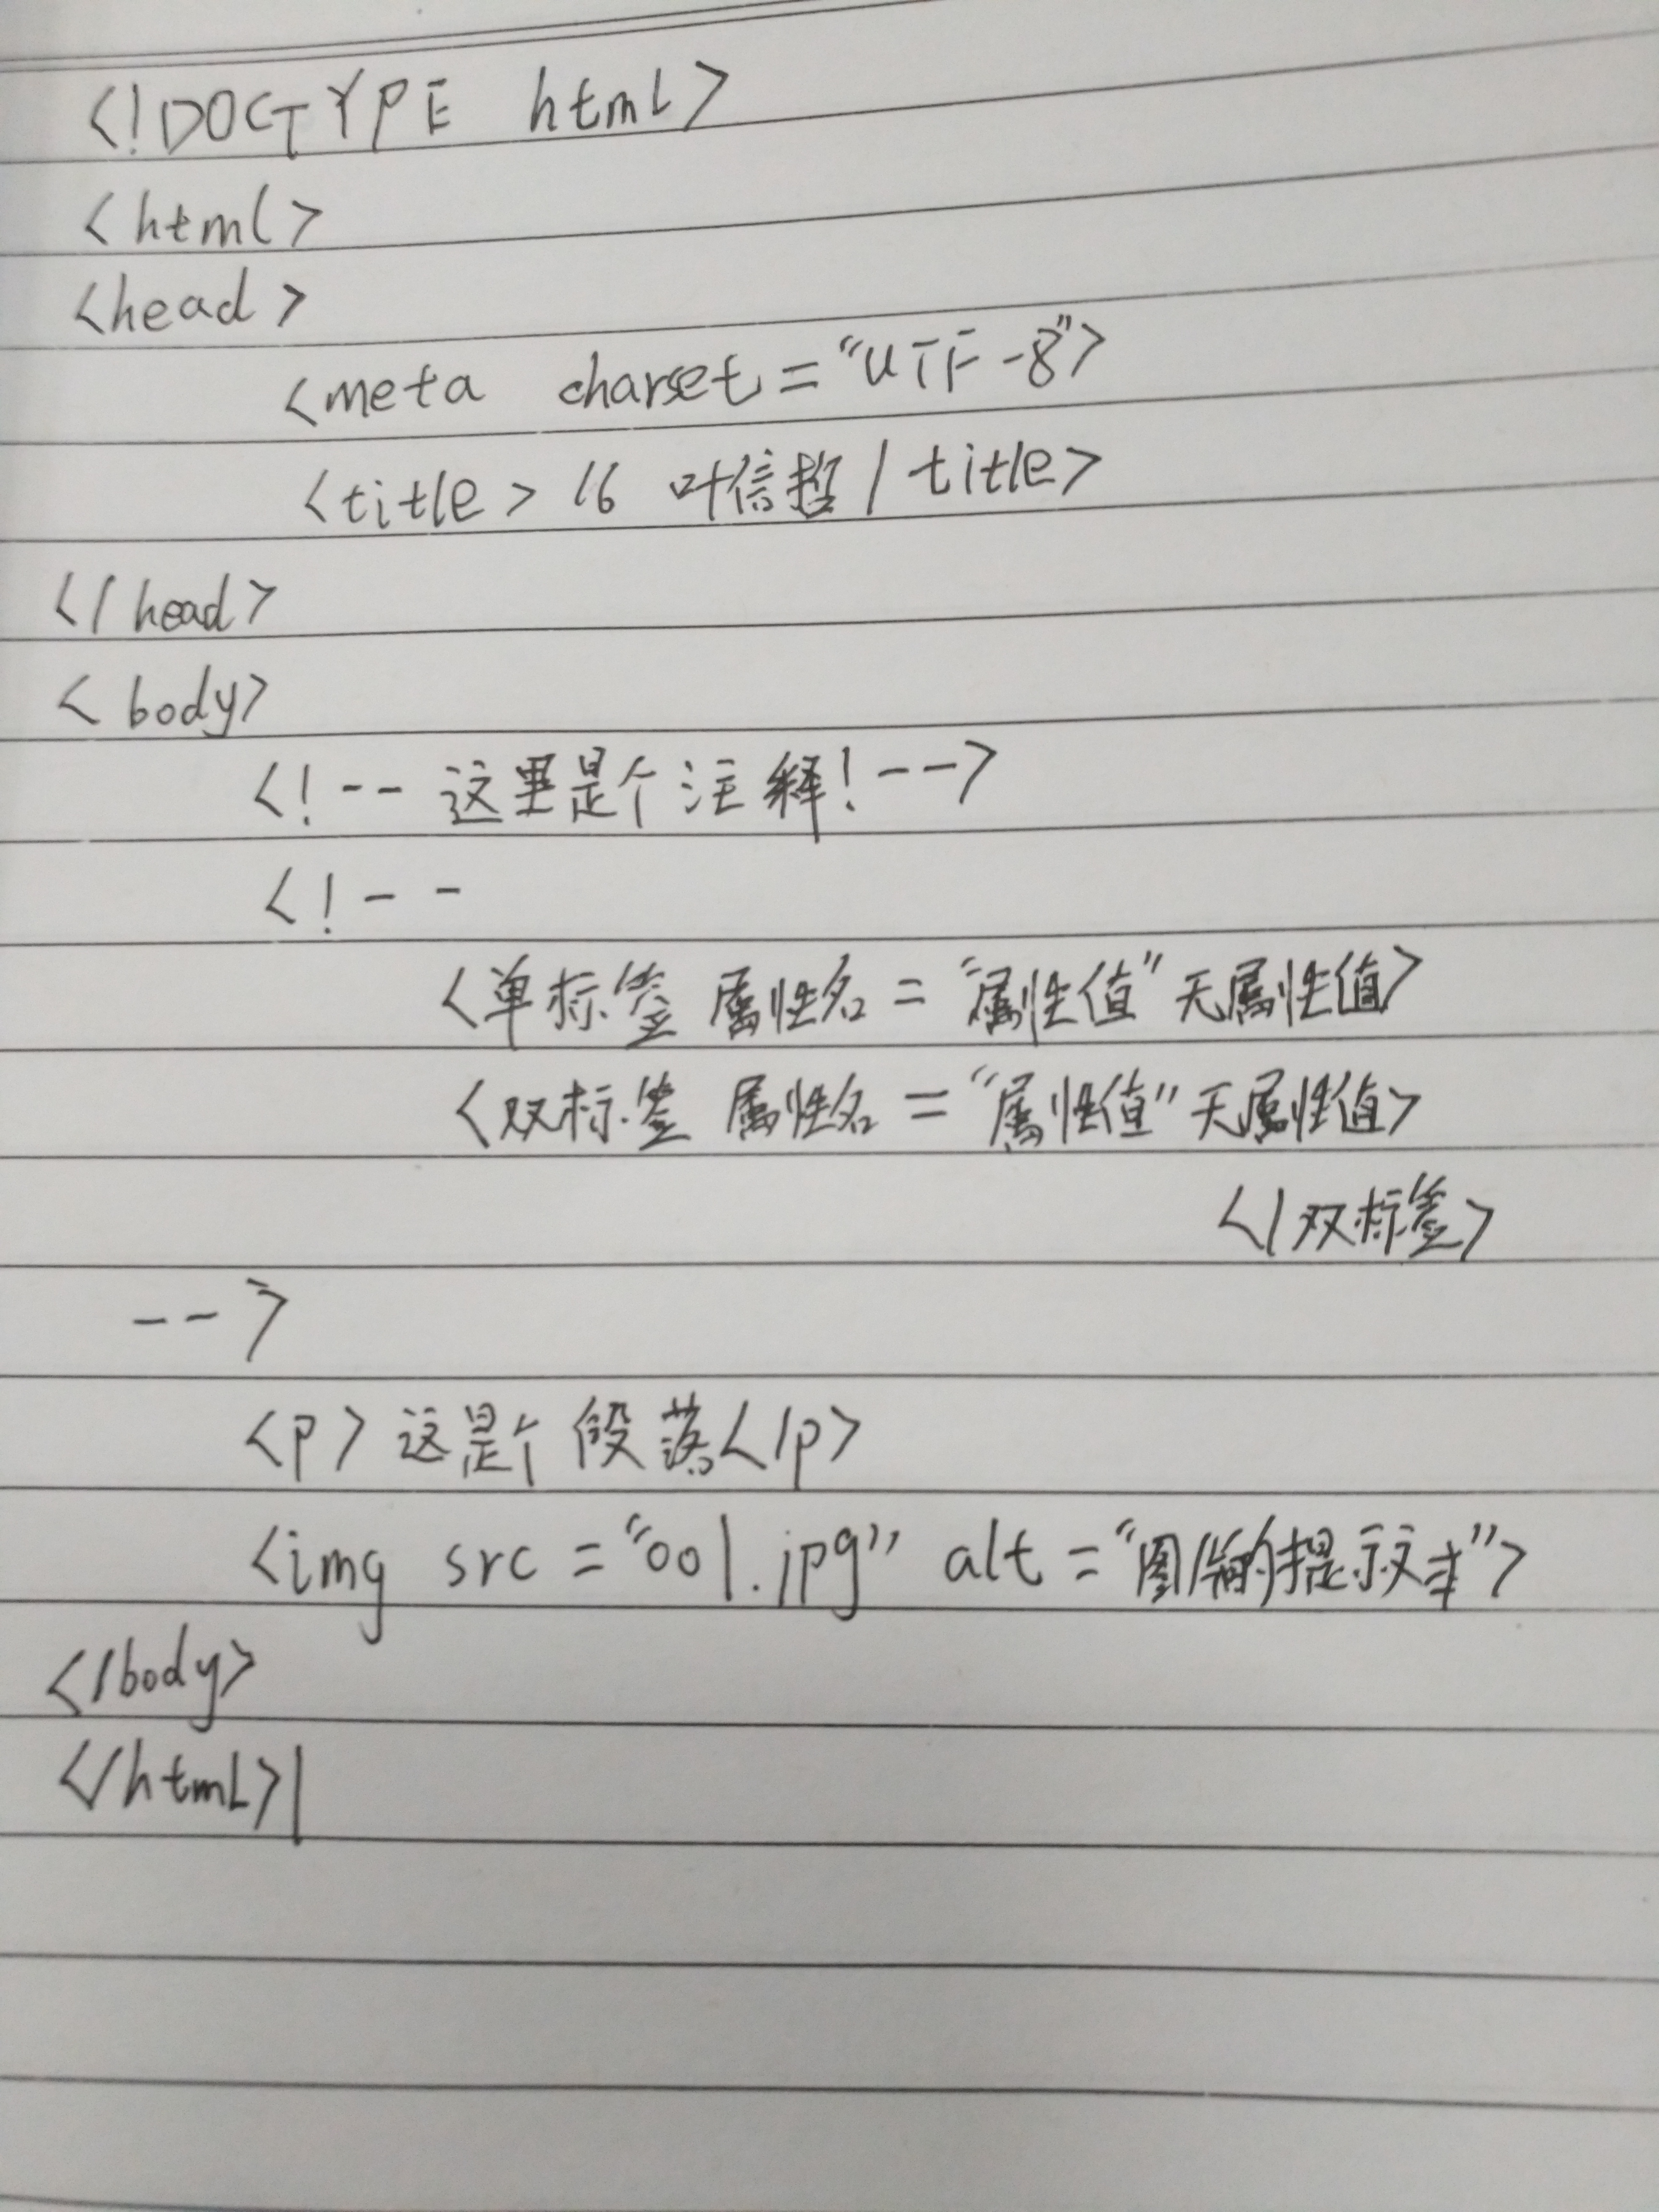 <!DOCTYPE html>
<html>
<head>
<meta charset="UTF-8">
<title>16 叶信哲/title>
</head>
<body>
<!--这里是个注释!-->
<!--
<单标签 属性名="属性值"无属性值>
<双标签 属性名="属性值"无属性值>
</双标签>
-->
<p>这是个段落</p>
<img src="001.jpg" alt="图像的提示文本">
</body>
</html>|